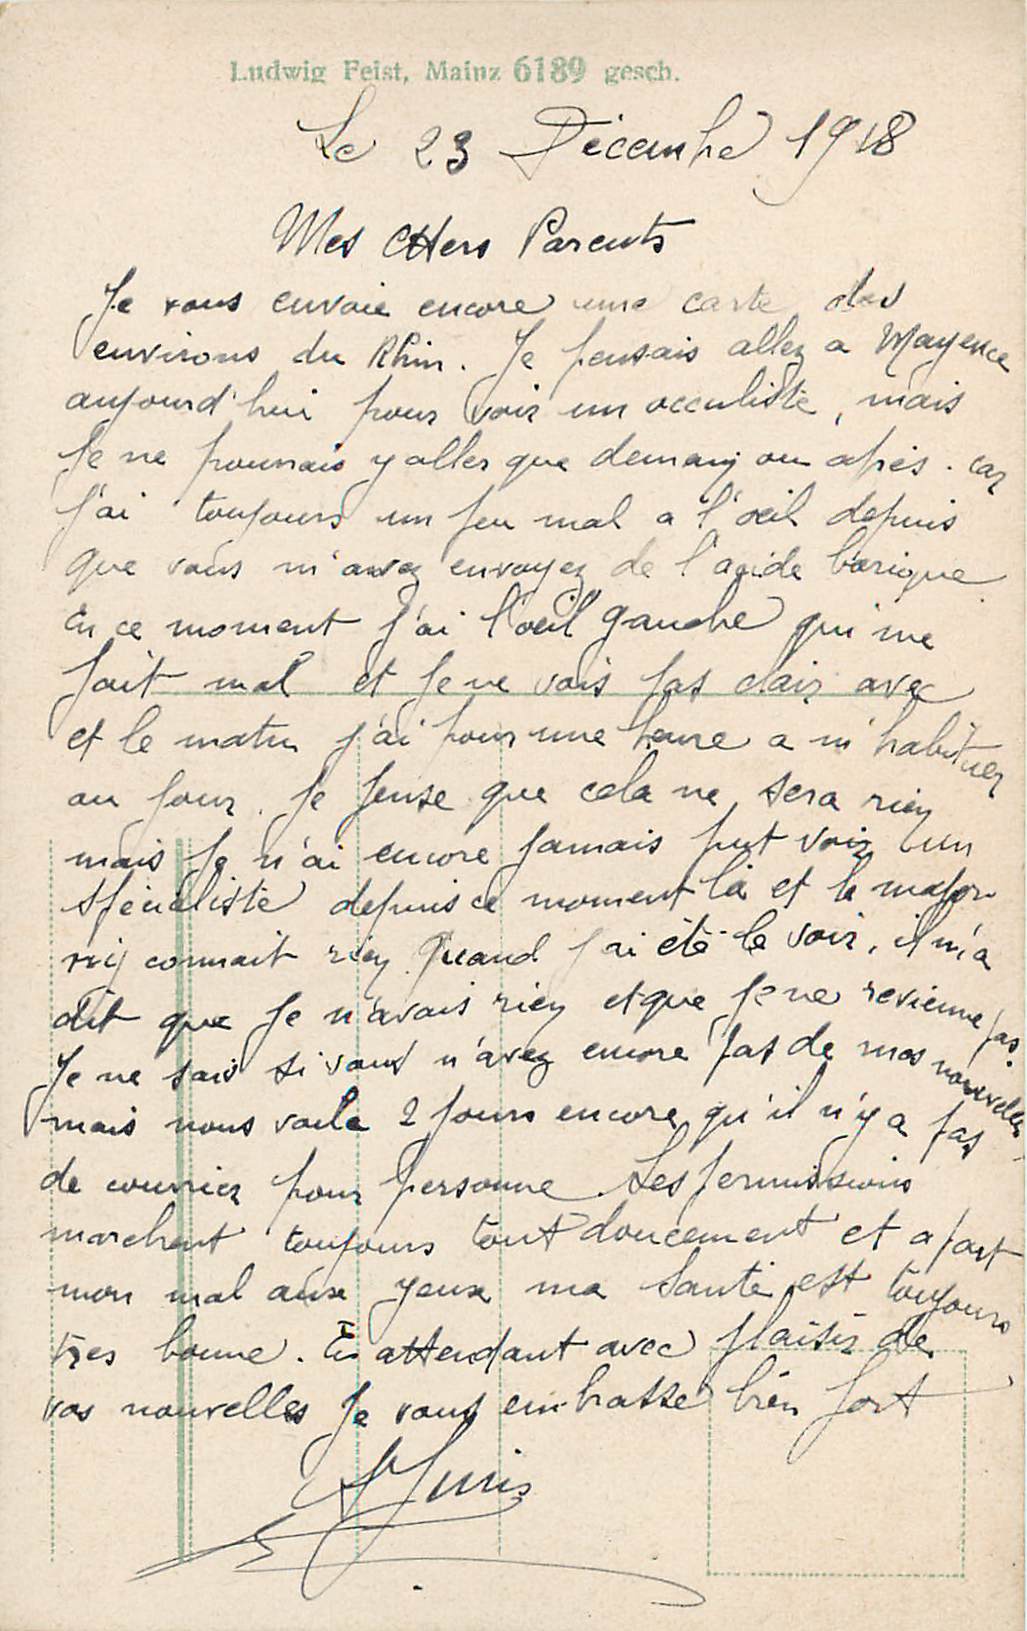 Ludwig Feist, Mainz 6189 gesch.
Le 23 Décembre 1918
Mes CHers Parents
Je vous envoie encore une carte des
environs du Rhin. Je pensais allez a Mayence
aujourd'hui pour voir un occuliste, mais
je ne pourrais y aller que demain ou après. car
j'ai toujours un peu mal a l'oeil depuis
que vous m'avez envoyez de l'acide borique
En ce moment j'ai l'oeil gauche qui me
fait mal et je ne vois pas clair avec
et le matin j'ai pour une heure a m'habituer
au jour. Je pense que cela ne sera rien
mais je n'ai encore jamais put voir un
spécialiste depuis ce moment là et le major
n'y connait rien. Quand j'ai été le voir, il m'a
dit que je n'avais rien et que je ne revienne pas.
Je ne sais si vous n'avez encore pas de mes nouvelles
mais nous voila 2 jours encore qu'il n'y a pas
de courrier pour personne. Les permissions
marchent toujours tout doucement et apart
mon mal aux yeux ma santé est toujours
très bonne. En attendant avec plaisir de
vos nouvelles je vous embrasse bien fort